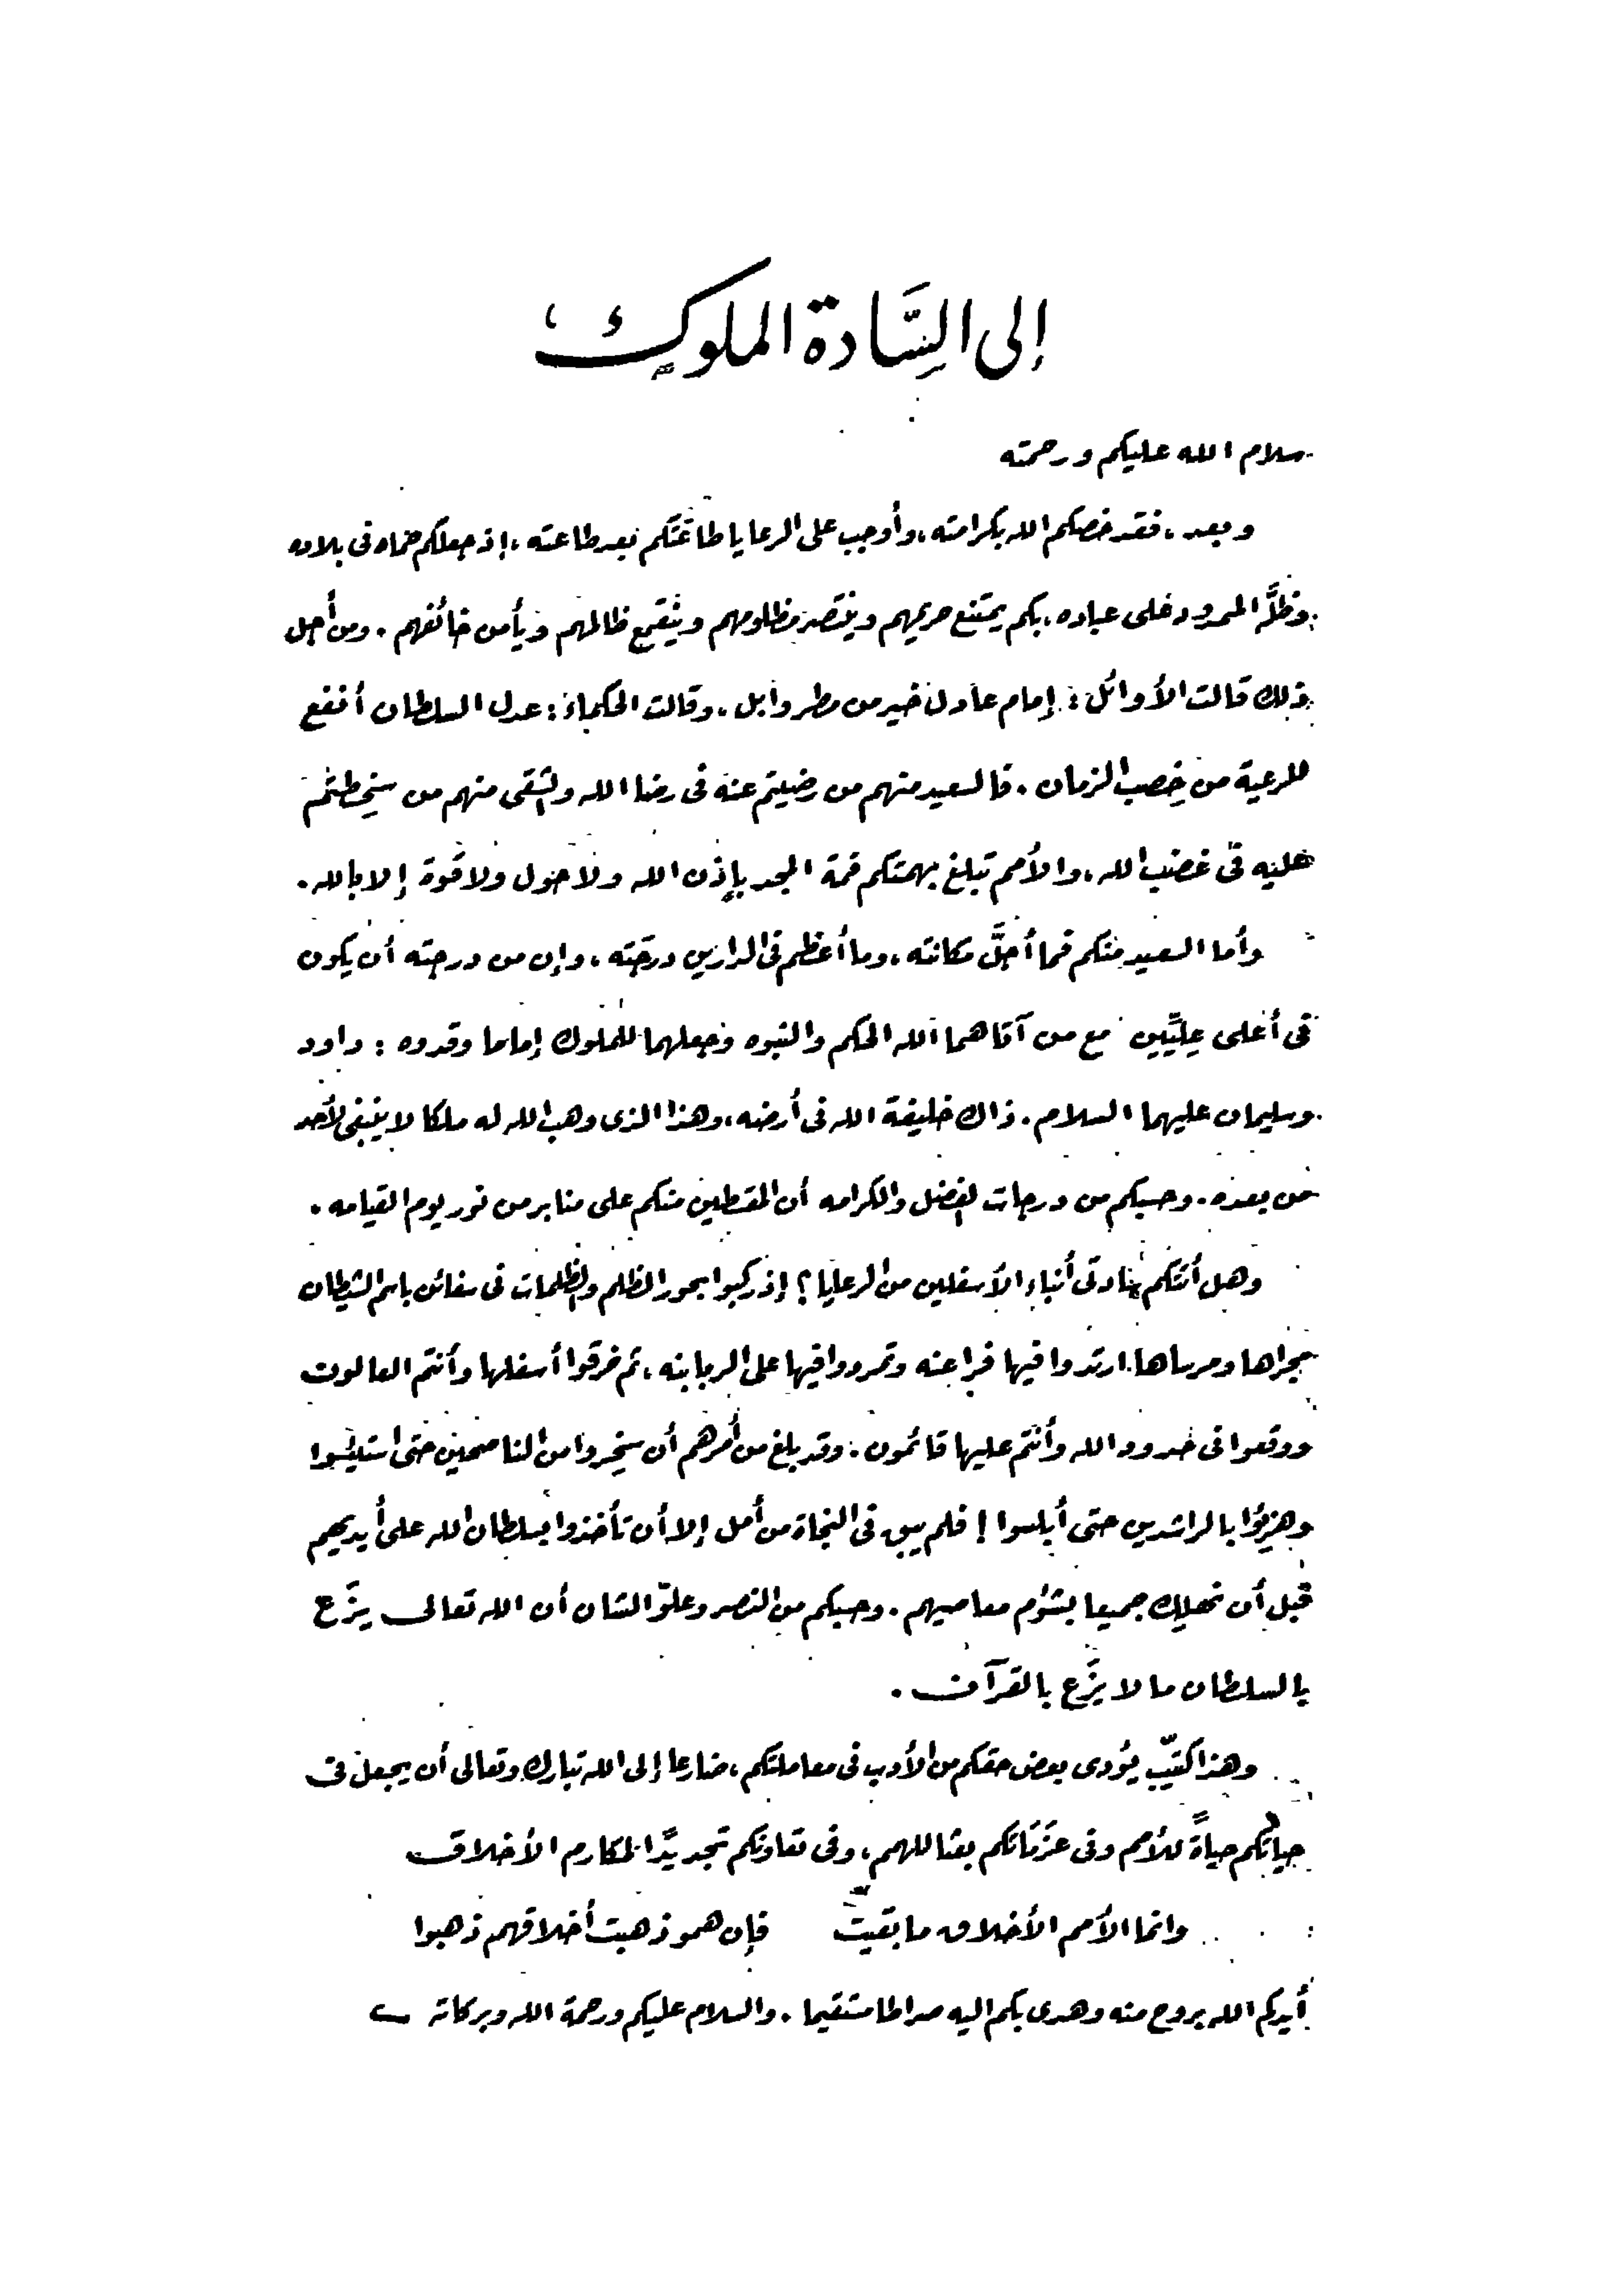 إلى السَّادة الملوك
سلام الله عليكم ورحمته
وبعد، فقد خصكم الله بكرامته، وأوجب على الرعايا طاعتكم بعد طاعته، إذ جعلكم حماه فى بلاده
وظلَّه الممدود على عباده، بكم يمتنع حريمهم وينتصر مظلومهم وينقمع ظالمهم ويأمن خائفهم. ومن أجل
ذلك قالت الأوائل: إمام عادل خير من مطر وابل، وقالت الحكماء: عدل السلطان أنفع
للرعية من خِصب الزمان. فالسعيد منهم من رضيتم عنه فى رضا الله والشقى منهم من سخِطتم
عليه فى غضب الله، والأمم تبلغ بهمتكم قمة المجد بإذن الله ولا حول ولا قوة إلا بالله.
وأما السعيد منكم فما أجلَّ مكانته، وما أعظم فى الدارين درجته، وإن من درجته أن يكون
فى أعلى عِلِيِّين مع من آتاهما الله الحكم والنبوه وجعلهما للملوك إماما وقدوه: داود
وسليمان عليهما السلام. ذاك خليفة الله فى أرضه، وهذا الذى وهب الله له ملكا لا ينبغى لأحد
من بعده. وحسبكم من درجات الفضل والكرامه أن المقسطين منكم على منابر من نور يوم القيامه.
وهل أتتكم يا سادتى أنباء الأسفلين من الرعايا؟ إذ ركبوا بحور الظلم والظلمات فى سفائن باسم الشيطان
مجراها ومرساها. ارتدوا فيها فراعنه وتمردوا فيها على الربابنه، ثم خرقوا أسفلها وأنتم العالون
ووقعوا فى حدود الله وأنتم عليها قائمون. وقد بلغ من أمرهم أن سخِروا من الناصحين حتى استيئسوا
وهزِئوا بالراشدين حتى أبلسوا! فلم يبق فى النجاة من أمل إلا أن تأخذوا بسلطان الله على أيديهم
قبل أن نهلِك جميعا بشؤم معاصيهم. وحسبكم من النصر وعلوّ الشان أن الله تعالى يزَع
بالسلطان ما لا يزَع بالقرآن.
وهذا كتيّب يؤدى بعض حقكم من الأدب فى معاملتكم، ضارعا إلى الله تبارك وتعالى أن يجعل فى
حياتكم حياةً للأمم وفى عزَمَاتكم بعثا للهمم، وفى تعاونكم تجديدًا لمكارم الأخلاق
وانما الأمم الأخلاق ما بقيت فإن همو ذهبت أخلاقهم ذهبوا
أيدكم الله بروح منه وهدى بكم اليه صراطا مستقيما. والسلام عليكم ورحمة الله وبركاته